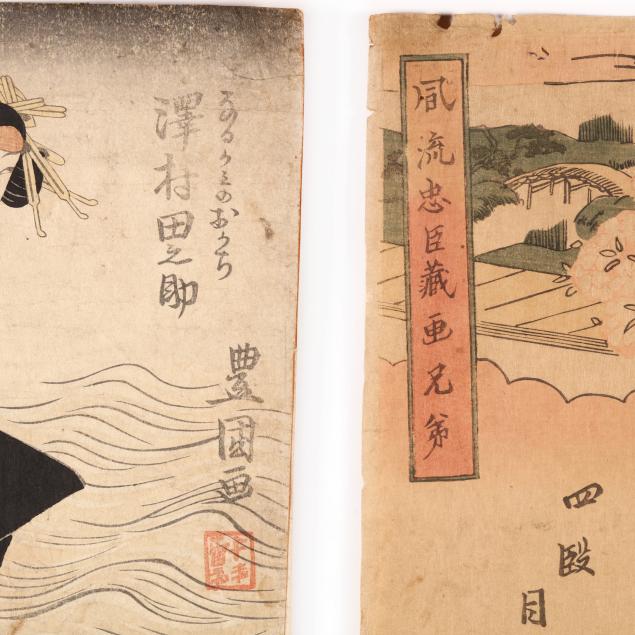 風流忠臣蔵画兄弟
四段
目
なるかみのおかち
澤村田之助
豊國画